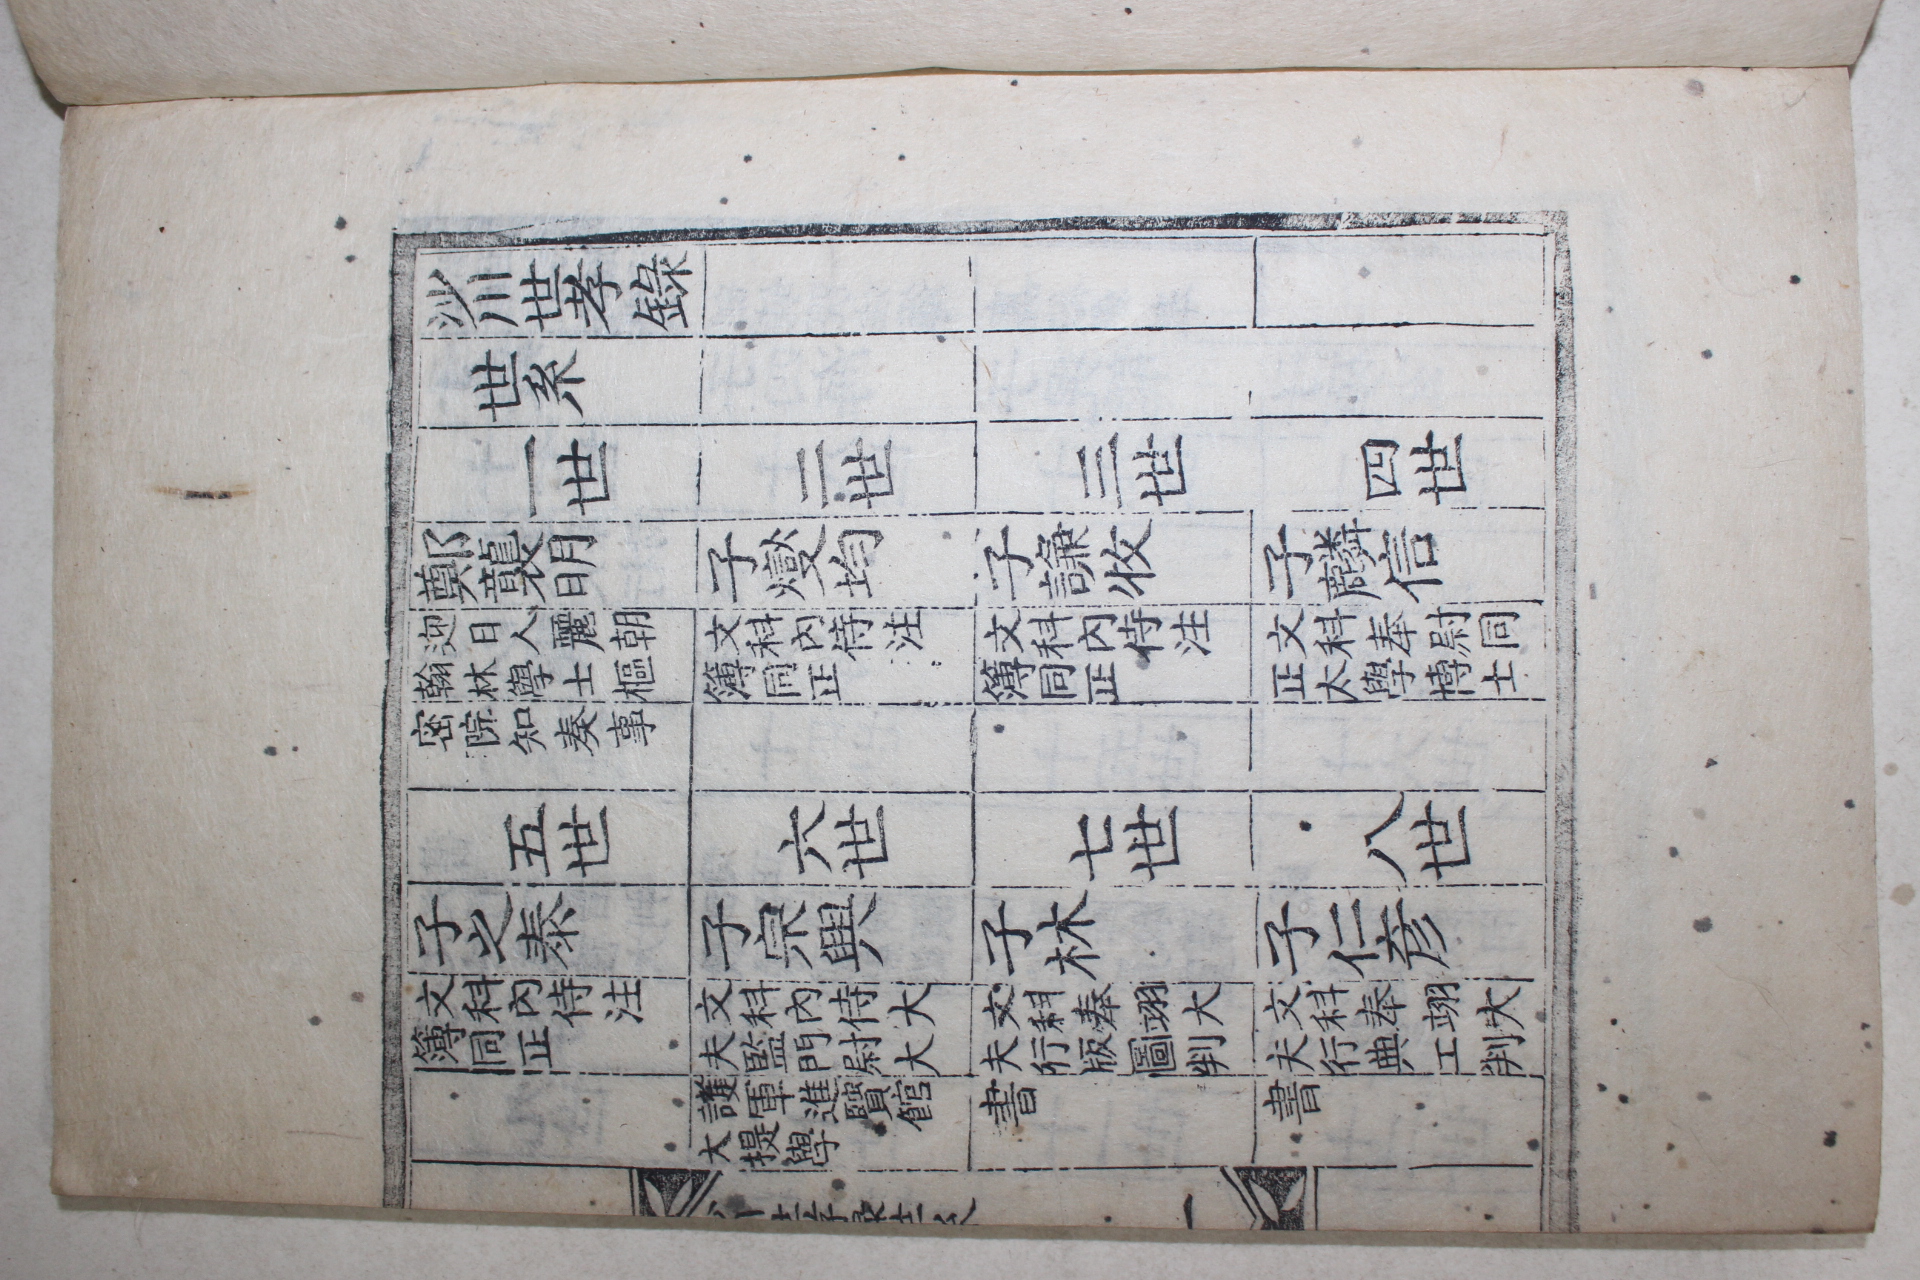 沙川世孝錄
世系
一世
鄭襲明
迎日人麗朝
翰林學士樞
密院知奏事
二世
子燮均
文科內侍注
簿同正
三世
子謙牧
文科內侍注
簿同正
四世
子麟信
文科奉尉同
正太學博士
五世
子之泰
文科內侍注
簿同正
六世
子宗興
文科內侍大
夫監門尉大
護軍進賢館
大提學
七世
子林
文科奉翊大
夫行版圖判
書
八世
子仁彦
文科奉翊大
夫行典工判
書
沙川世孝錄世系
一